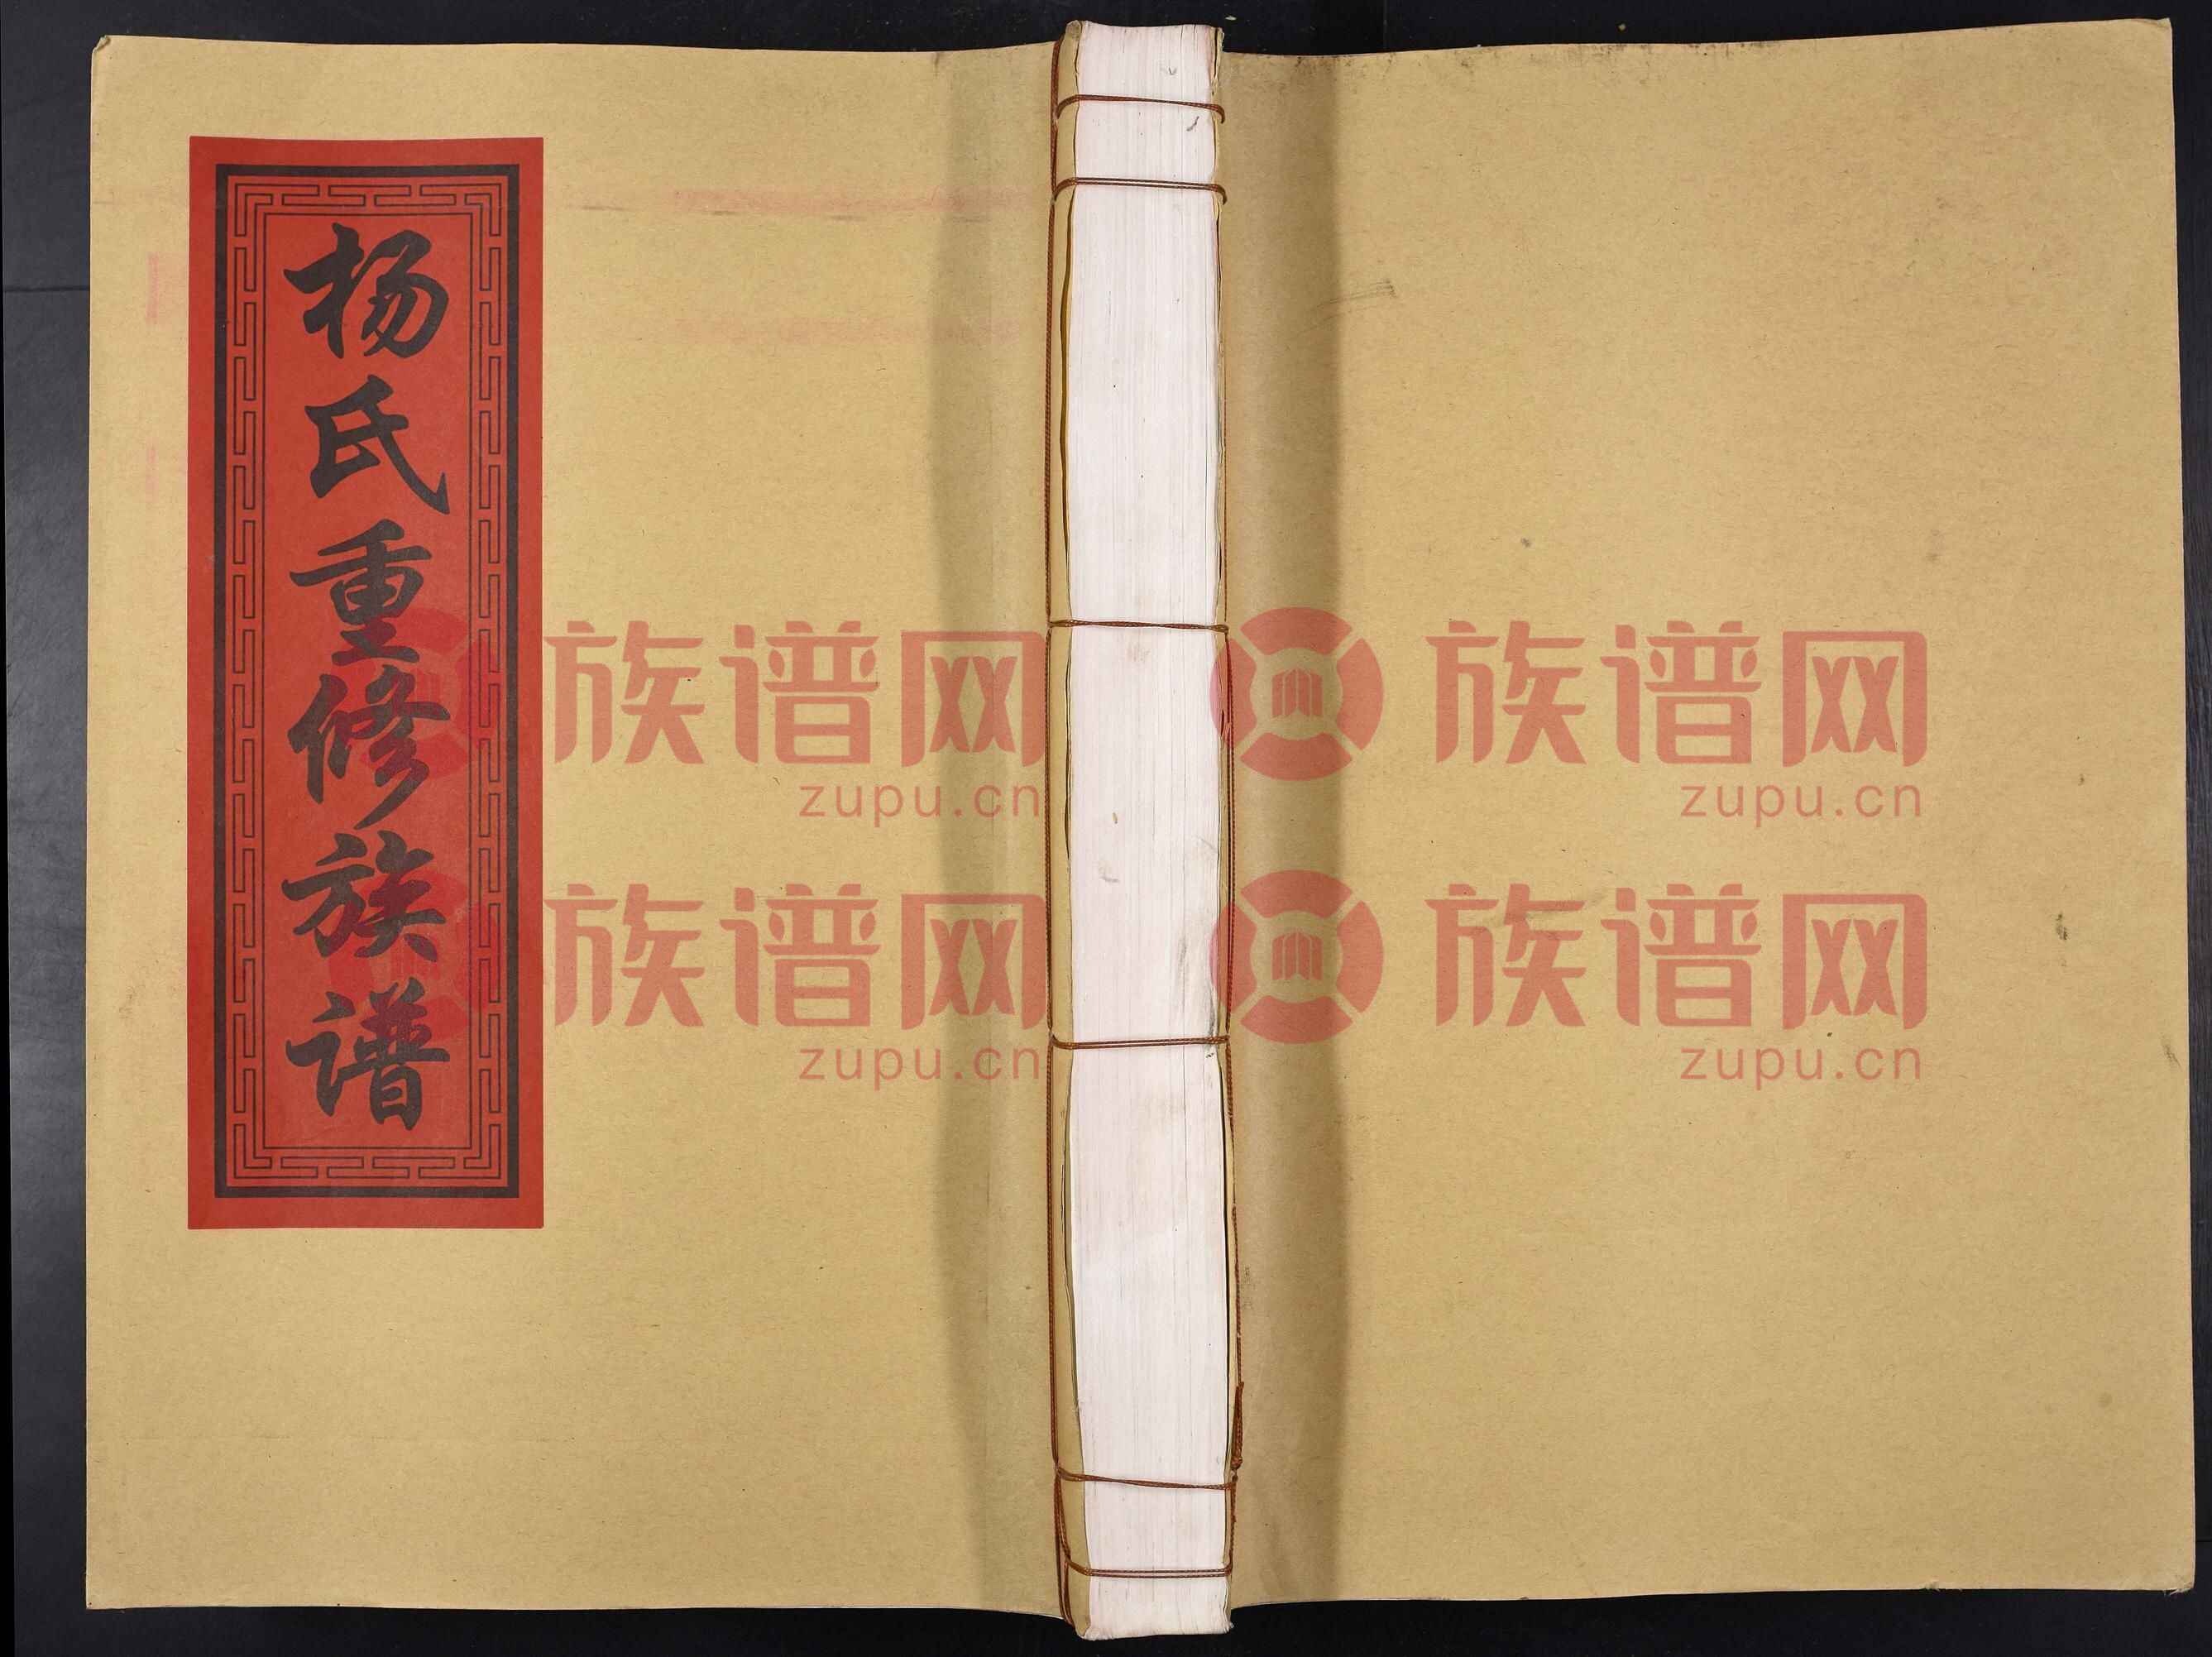 杨氏重修族谱
族谱网
zupu.cn
族谱网
zupu.cn
族谱网
zupu.cn
族谱网
zupu.cn